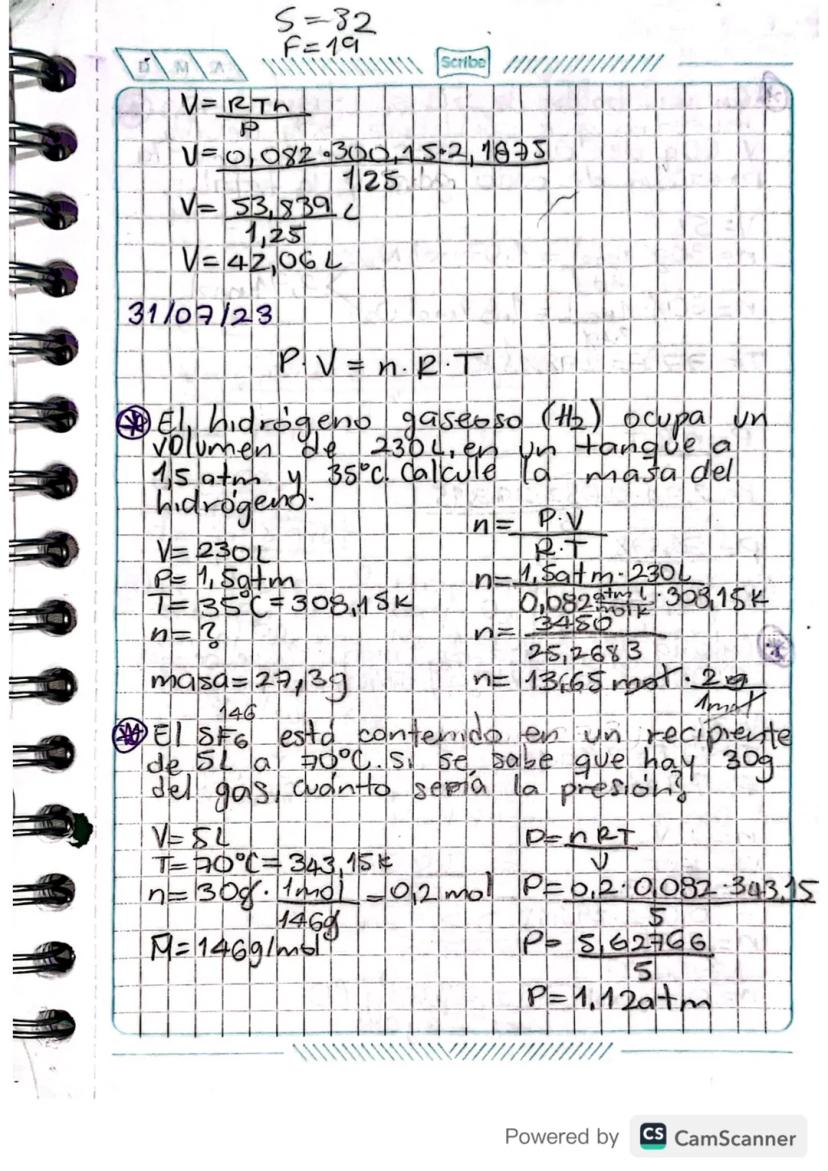 S = 32
F = 19
D M A
Scribe
V = RTn / P
V = 0,082 · 300,15 · 2,1875 / 1,25
V = 53,839 L / 1,25
V = 42,06 L
31/07/23
P · V = n · R · T
El hidrógeno gaseoso (H2) ocupa un
volumen de 230L, en un tanque a
1,5 atm y 35°C. Calcule la masa del
hidrógeno.
V = 230 L
P = 1,5 atm
T = 35°C = 308,15 K
n = ?
masa = 27,3 g
n = P·V / R·T
n = 1,5 atm · 230 L / 0,082 atm L / mol K · 308,15 K
n = 3450 / 25,2683
n = 13,65 mol · 2 g / 1 mol
146
El SF6 está contenido en un recipiente
de 5L a 70°C. Si se sabe que hay 30g
del gas, cuánto sería la presión?
V = 5 L
T = 70°C = 343,15 K
n = 30g · 1 mol / 146g = 0,2 mol
M = 146 g/mol
P = nRT / V
P = 0,2 · 0,082 · 343,15 / 5
P = 5,62766 / 5
P = 1,12 atm
Powered by CS CamScanner